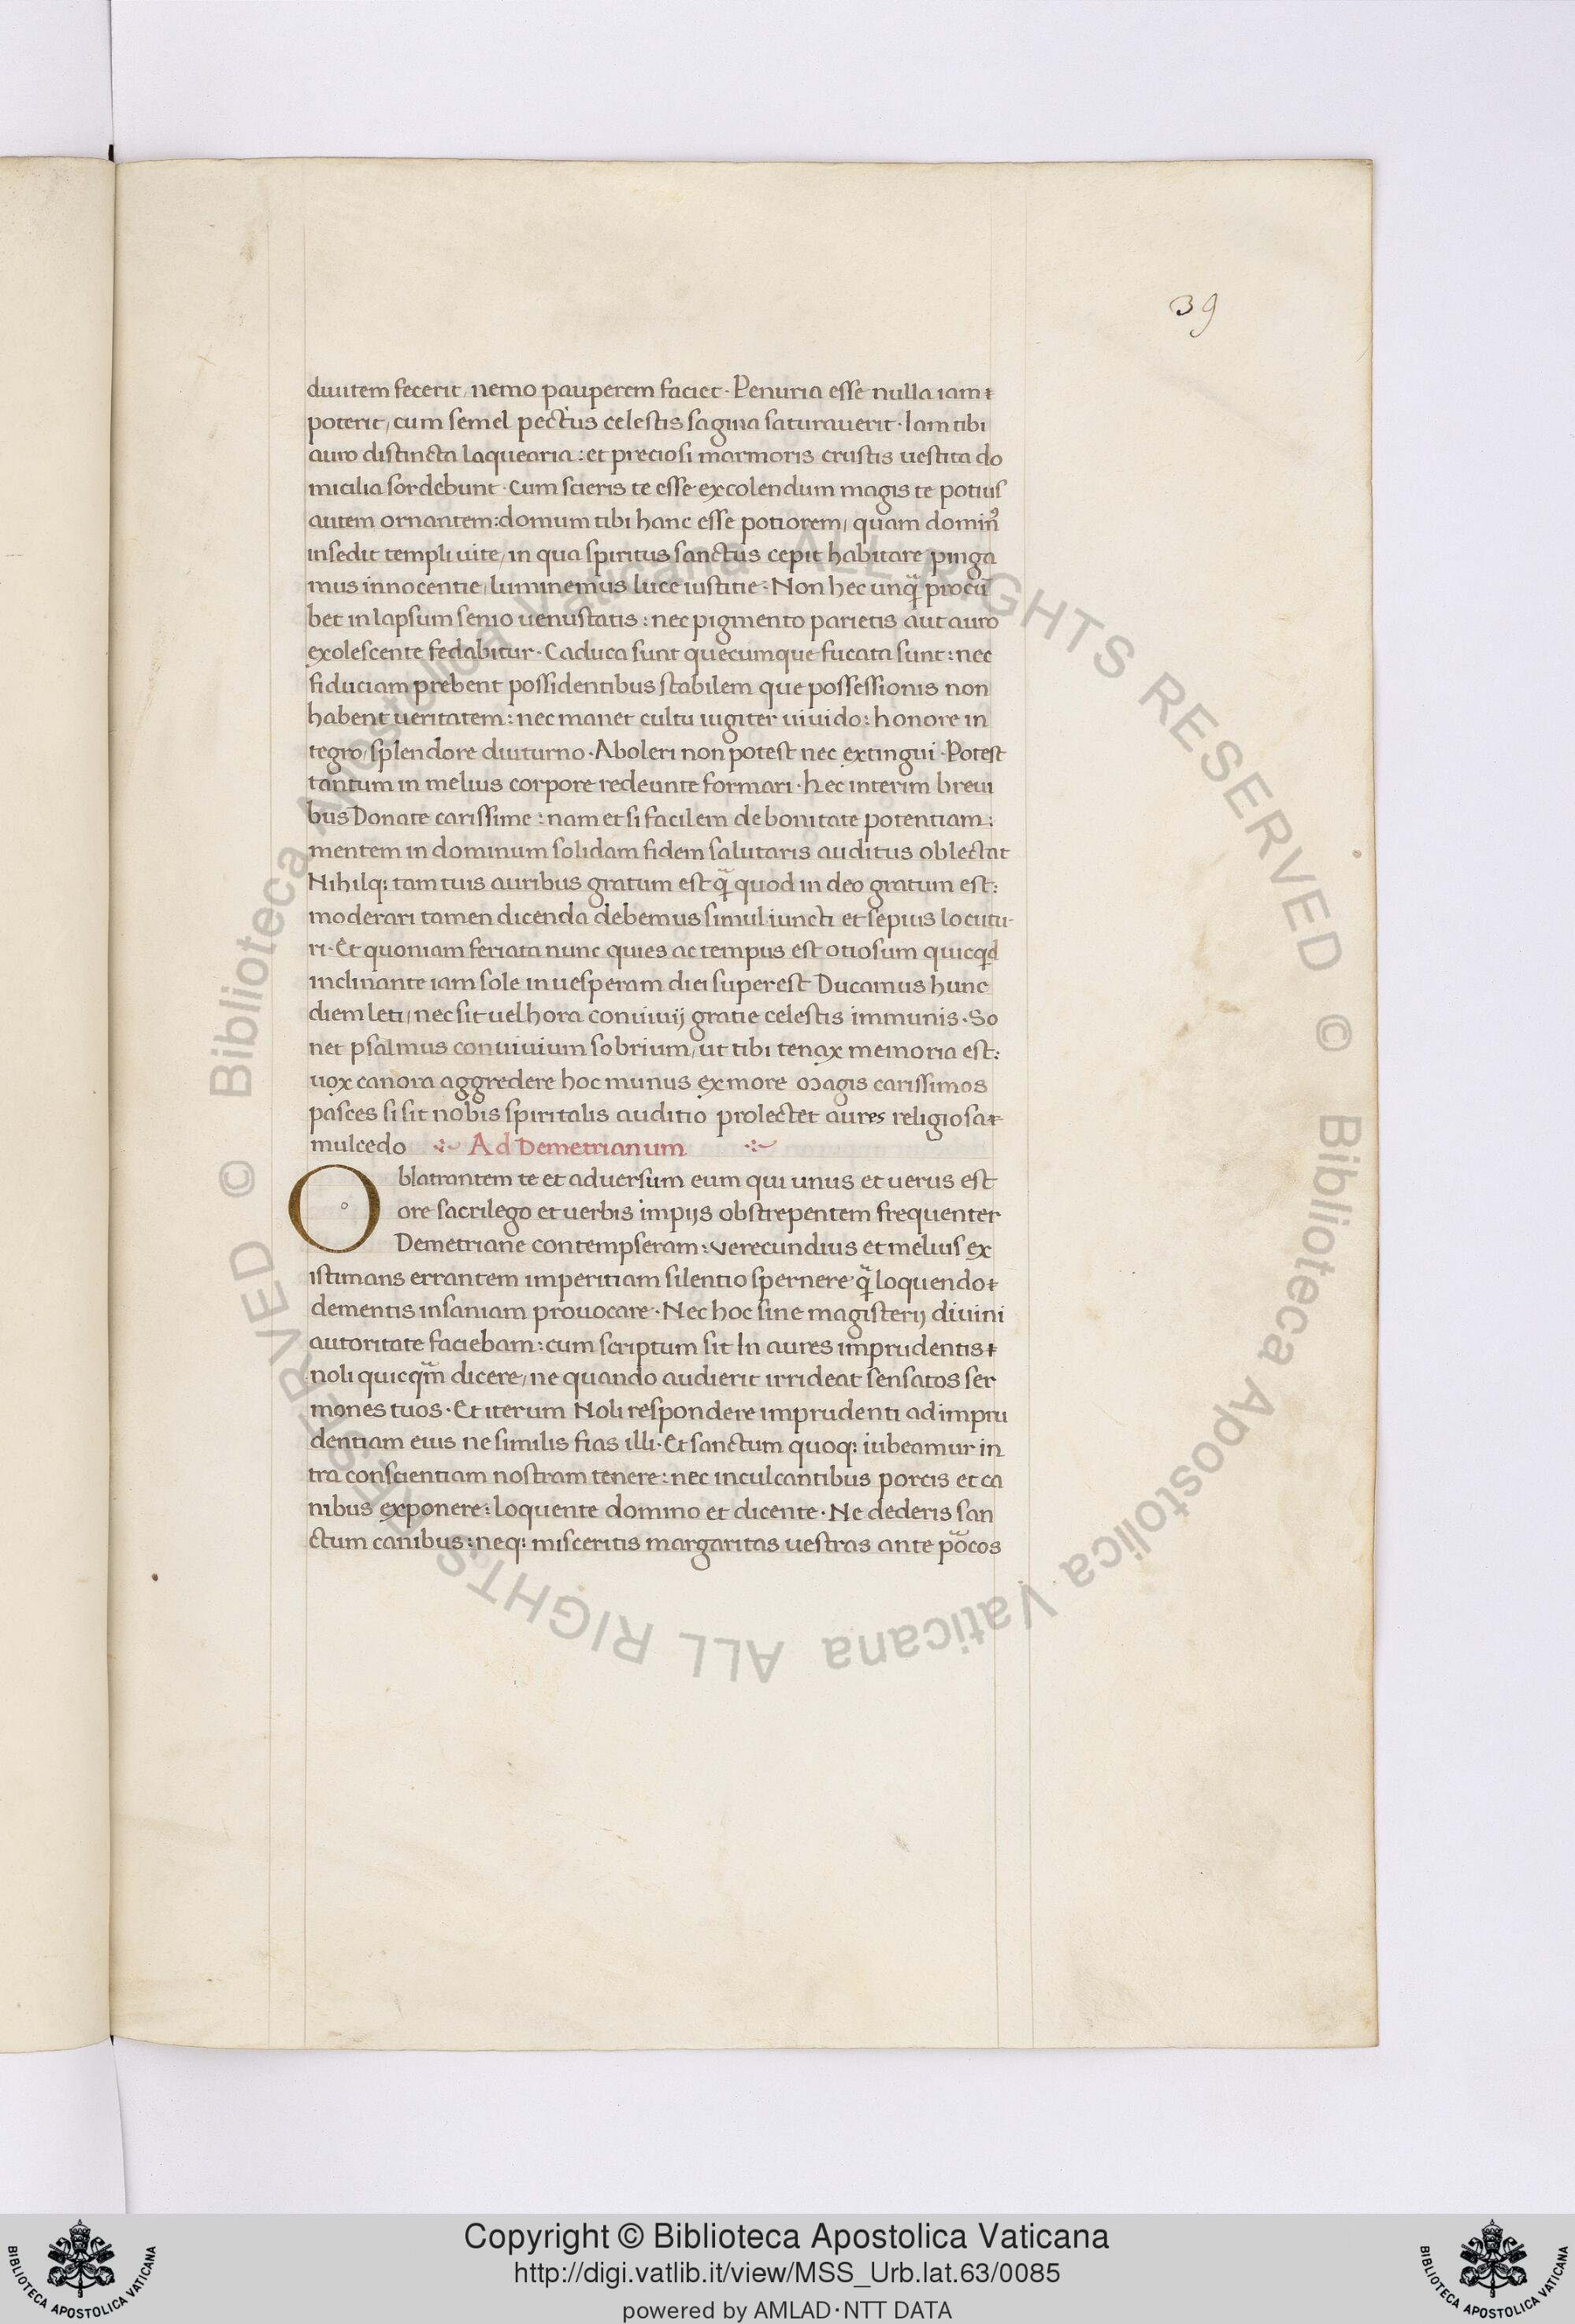 39
diuitem fecerit, nemo pauperem faciet · Penuria esse nulla iam
poterit, cum semel pectus celestis sagina saturauerit · Iam tibi
auro distincta laquearia : et preciosi marmoris crustis uestita do
micilia sordebunt · Cum scieris te esse excolendum magis te potius
autem ornantem : domum tibi hanc esse potiorem, quam domin⁹
insedit templi uite, in qua spiritus sanctus cepit habitare pinga
mus innocentie, luminemus luce iustitie · Non hec unq̃ procũ
bet in lapsum senio uenustatis : nec pigmento parietis aut auro
exolescente fedabitur · Caduca sunt quecumque fucata sunt : nec
fiduciam prebent possidentibus stabilem que possessionis non
habent ueritatem : nec manet cultu iugiter uiuido : honore in
tegro, splendore diuturno · Aboleri non potest nec extingui · Potest
tantum in melius corpore redeunte formari · hec interim breui
bus Donate carissime : nam et si facilem de bonitate potentiam :
mentem in dominum solidam fidem salutaris auditus oblectat
Nihilq; tam tuis auribus gratum est q̃ quod in deo gratum est :
moderari tamen dicenda debemus simul iuncti et sepius locutu-
ri · Et quoniam feriata nunc quies ac tempus est otiosum quicqd
inclinante iam sole in uesperam diei superest Ducamus hunc
diem leti, nec sit uel hora conuiuij gratie celestis immunis · So
net psalmus conuiuium sobrium, ut tibi tenax memoria est :
uox canora aggredere hoc munus ex more magis carissimos
pasces si sit nobis spiritalis auditio prolectet aures religiosa
mulcedo Ad Demetrianum
Oblatrantem te et aduersum eum qui unus et uerus est
ore sacrilego et uerbis impijs obstrepentem frequenter
Demetriane contempseram : uerecundius et melius ex
istimans errantem imperitiam silentio spernere q̃ loquendo
dementis insaniam prouocare · Nec hoc sine magisterij diuini
autoritate faciebam : cum scriptum sit In aures imprudentis
noli quicq̃m dicere, ne quando audierit irrideat sensatos ser
mones tuos · Et iterum Noli respondere imprudenti ad impru
dentiam eius ne similis fias illi · Et sanctum quoq; iubeamur in
tra conscientiam nostram tenere : nec inculcantibus porcis et ca
nibus exponere : loquente domino et dicente · Ne dederis san
ctum canibus : neq; misceritis margaritas uestras ante põcos
© Biblioteca Apostolica Vaticana ALL RIGHTS RESERVED
© Biblioteca Apostolica Vaticana ALL RIGHTS RESERVED
Copyright © Biblioteca Apostolica Vaticana
http://digi.vatlib.it/view/MSS_Urb.lat.63/0085
powered by AMLAD·NTT DATA
BIBLIOTECA APOSTOLICA VATICANA
BIBLIOTECA APOSTOLICA VATICANA